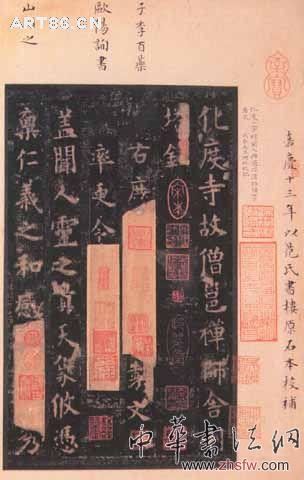 ART86.CN
嘉慶十三年以范氏書樓原石本校補
化度寺故僧邕禪師舍
塔銘
右庶
子李百藥
文
率更令
歐陽詢書
蓋聞人靈之貴天象攸憑
稟仁義之和感
山川之
乃
中華書法網
www.zhsfw.com